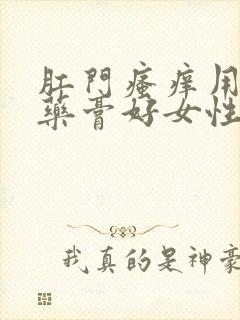 肛門瘙痒用
藥膏好女性
我真的是神豪